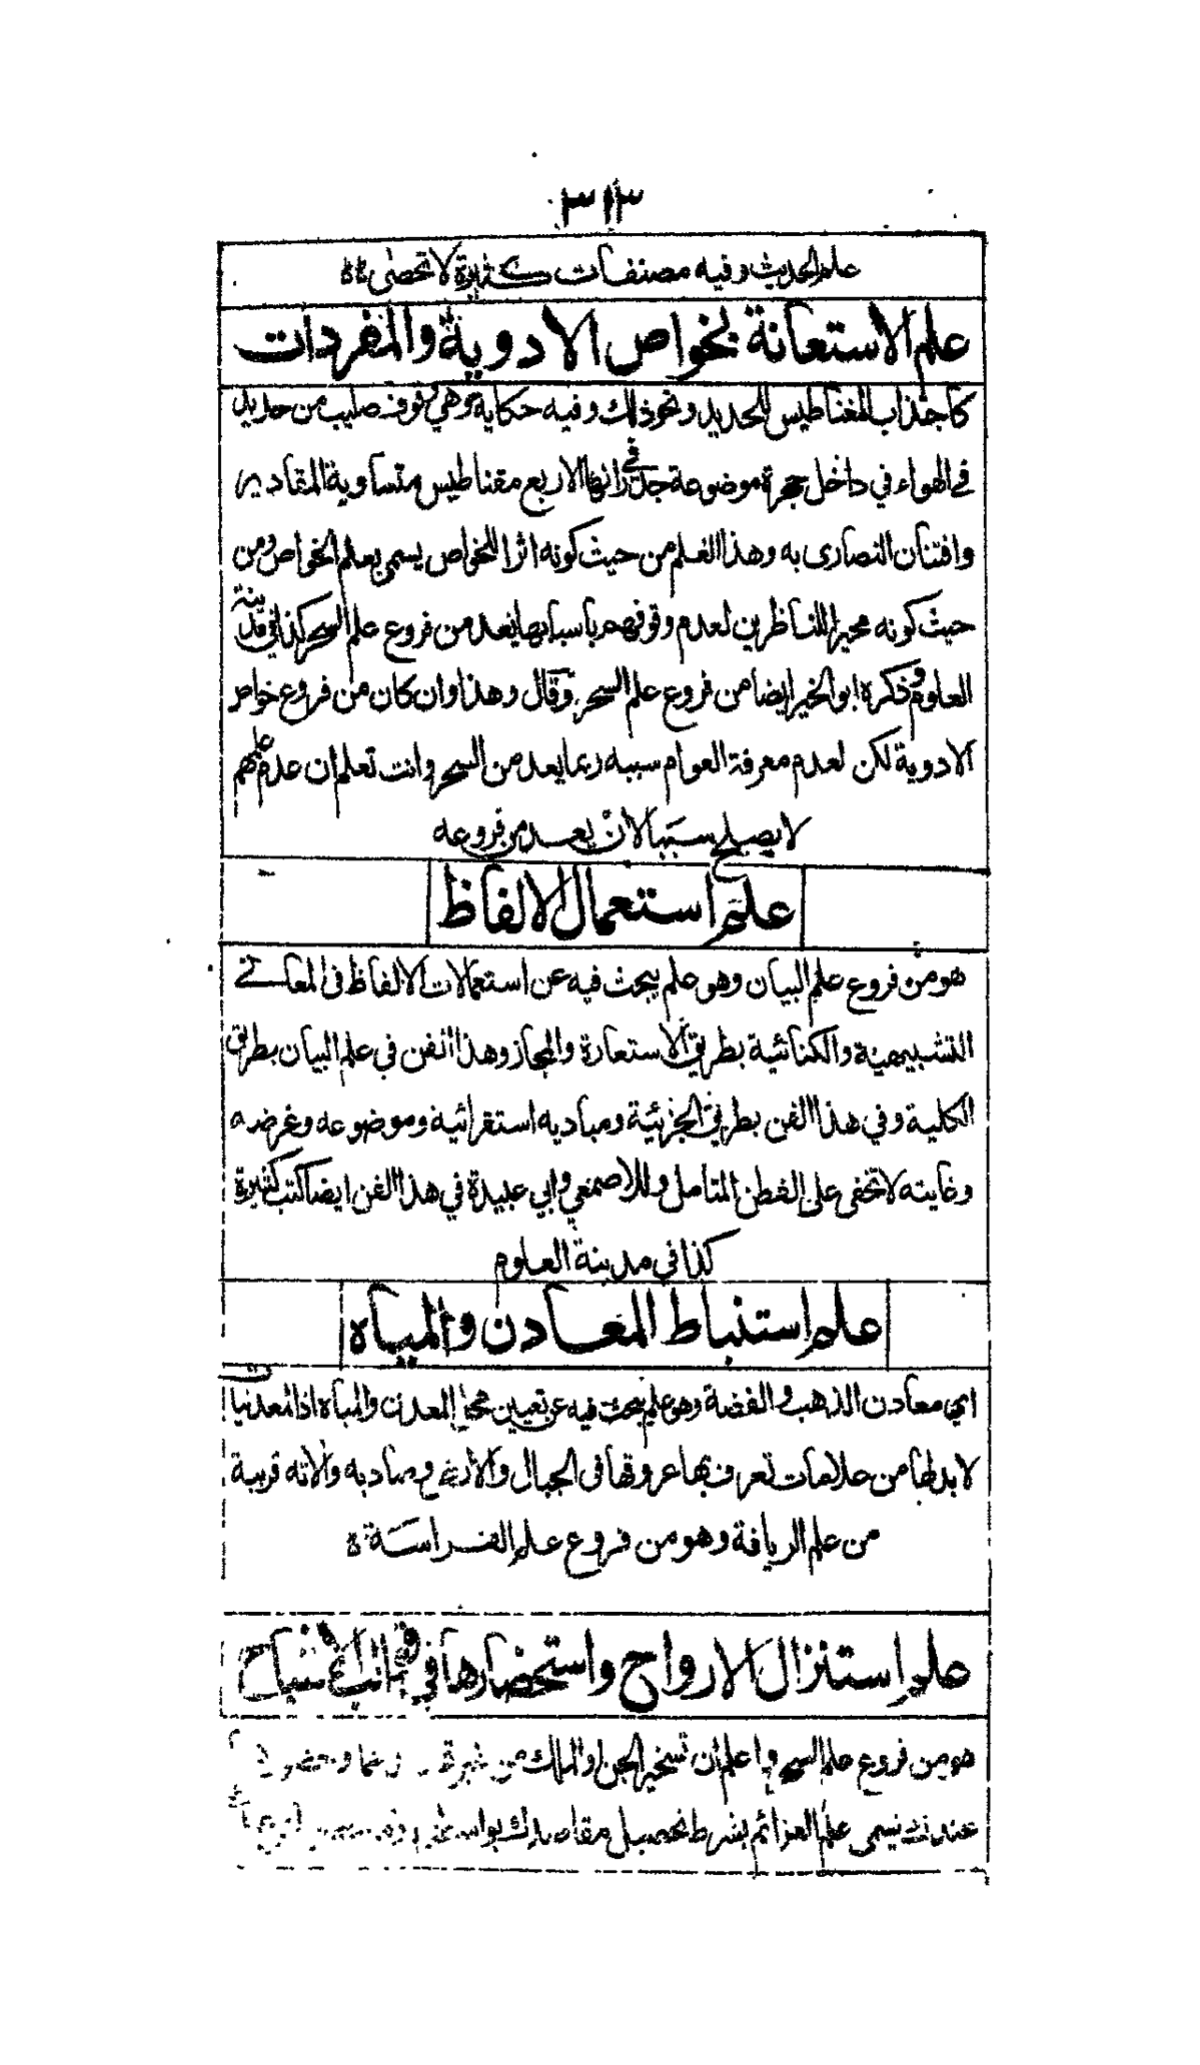 ٣١٣
علم الحديث وفيه مصنفات كثيرة لا تحصى
علم الاستعانة بخواص الادوية والمفردات
كاجتذاب المغناطيس للحديد ونحو ذلك وفيه حكاية وهي وقوف صليب من حديد
في الهواء في داخل حجرة موضوعة في جدرانها الاربع مقناطيس متساوية المقادير
وافتتان النصارى به وهذا العلم من حيث كونه اثرا للخواص يسمى بعلم الخواص ومن
حيث كونه محيرا للناظرين لعدم وقوفهم باسبابها يعد من فروع علم السحر كذا في مدينة
العلوم وذكره ابو الخير ايضا من فروع علم السحر وقال وهذا وان كان من فروع خواص
الادوية لكن لعدم معرفة العوام سببه ربما يعد من السحر وانت تعلم ان عدم علمهم
لا يصلح سببا لان يعد من فروعه
علم استعمال الالفاظ
هو من فروع علم البيان وهو علم يبحث فيه عن استعمالات الالفاظ في المعاني
التشبيهية والكنائية بطريق الاستعارة والمجاز وهذا الفن في علم البيان بطريق
الكلية وفي هذا الفن بطريق الجزئية ومباديه استقرائية وموضوعه وغرضه
وغايته لا تخفى على الفطن المتامل وللاصمعي وابي عبيدة في هذا الفن ايضا كتب كثيرة
كذا في مدينة العلوم
علم استنباط المعادن والمياه
اي معادن الذهب والفضة وهو علم يبحث فيه عن تعيين محل المعدن والمياه اذ المعدنيات
لا بد لها من علامات تعرف بها عروقها في الجبال والارض ومباديه والاته قريبة
من علم الريافة وهو من فروع علم الفراسة
علم استنزال الارواح واستحضارها في قوالب الاشباح
هو من فروع علم السحر واعلم ان تسخير الجن او الملك من غير
عندك يسمى علم العزائم بشرط تحصيل مقاصدك بواسطتها